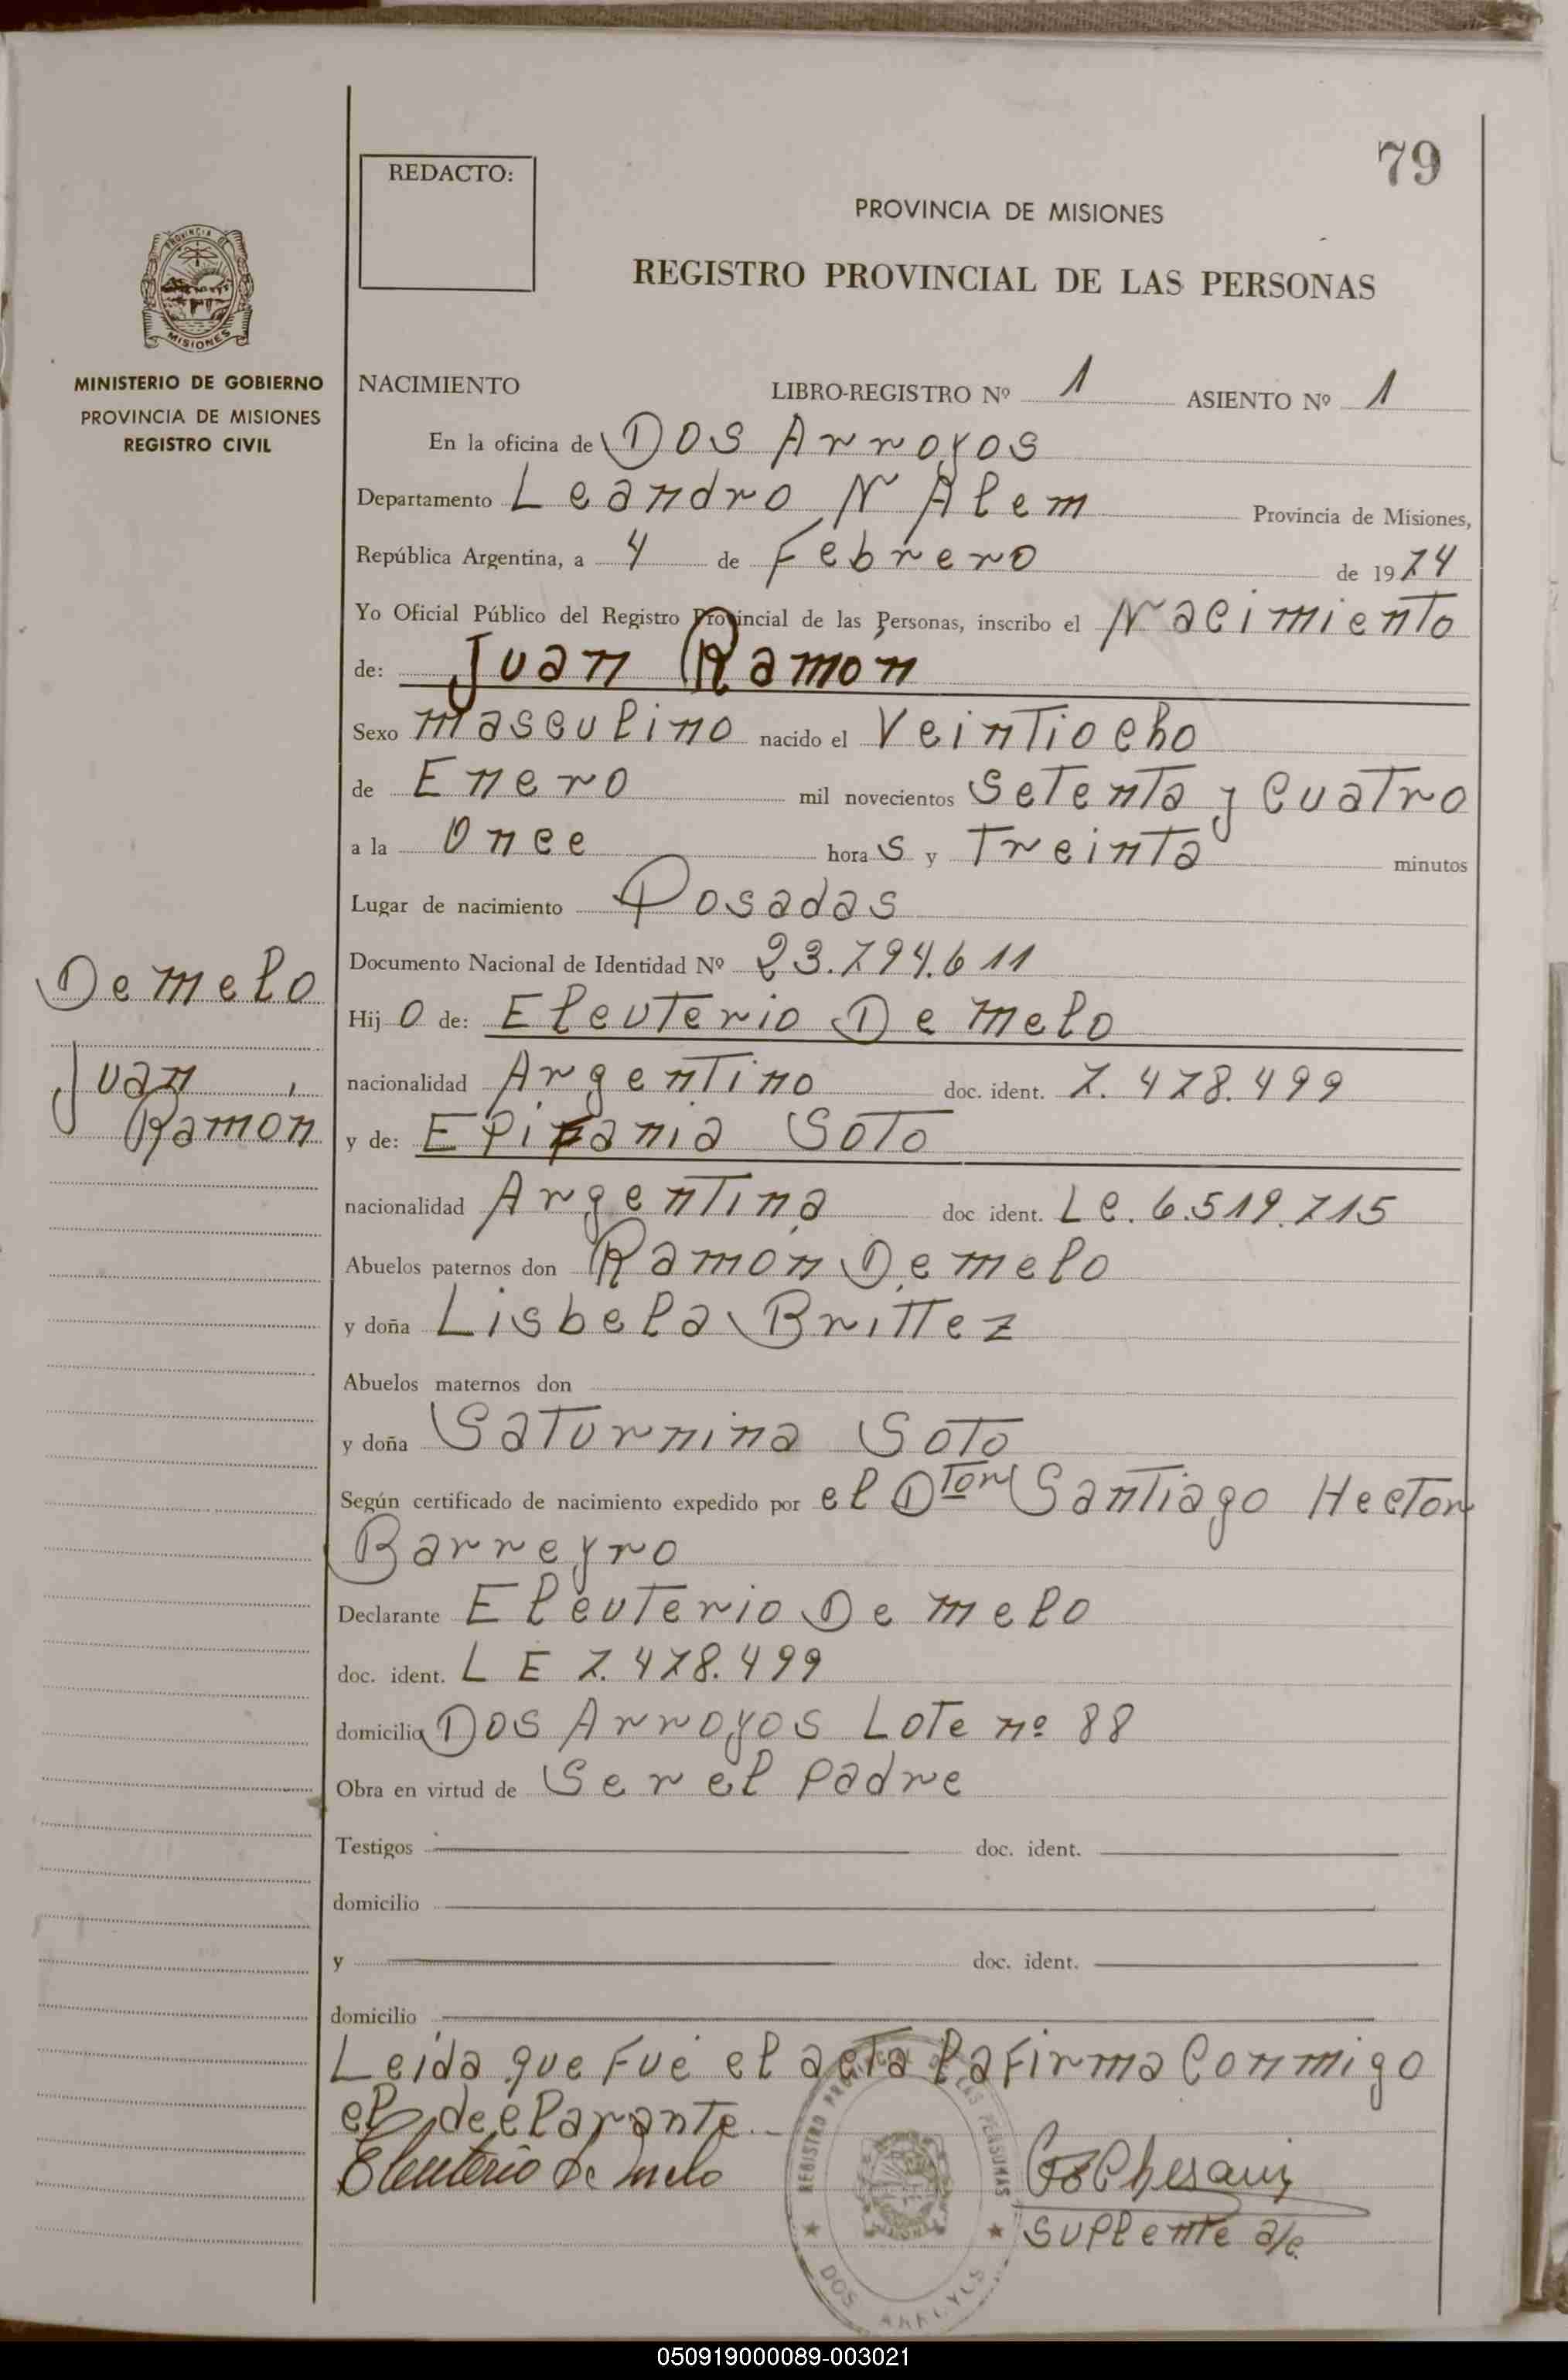 79
REDACTO:
PROVINCIA DE MISIONES
REGISTRO PROVINCIAL DE LAS PERSONAS
PROVINCIA DE
MISIONES
MINISTERIO DE GOBIERNO
PROVINCIA DE MISIONES
REGISTRO CIVIL
NACIMIENTO LIBRO-REGISTRO Nº 1 ASIENTO Nº 1
En la oficina de Dos Arroyos
Departamento Leandro N Alem Provincia de Misiones,
República Argentina, a 4 de Febrero de 1974
Yo Oficial Público del Registro Provincial de las Personas, inscribo el Nacimiento
de: Juan Ramón
Sexo masculino nacido el Veintiocho
de Enero mil novecientos setenta y cuatro
a la Once horas y Treinta minutos
Lugar de nacimiento Posadas
Documento Nacional de Identidad Nº 23.794.611
Hijo de: Eleuterio De melo
nacionalidad Argentino doc. ident. 7.478.499
y de: Epifania Soto
nacionalidad Argentina doc ident. Lc. 6.519.715
Abuelos paternos don Ramón De melo
y doña Lisbela Brittez
Abuelos maternos don
y doña Saturnina Soto
Según certificado de nacimiento expedido por el Dtor Santiago Hector
Barreyro
Declarante Eleuterio De melo
doc. ident. L E 7.478.499
domicilio Dos Arroyos Lote nº 88
Obra en virtud de Ser el padre
Testigos doc. ident.
domicilio
y doc. ident.
domicilio
Leida que fué el acta la firma conmigo
el declarante.
Eleuterio de melo
suplente a/c.
De melo
Juan
Ramón
REGISTRO PROVINCIAL DE LAS PERSONAS
DOS ARROYOS
050919000089-003021